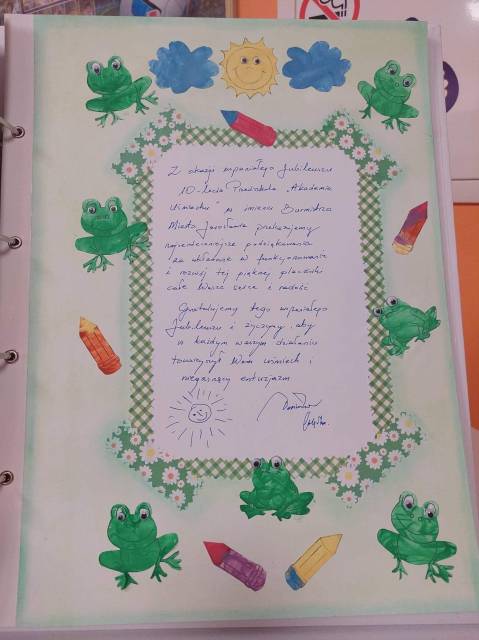 Z okazji wspaniałego Jubileuszu
10-lecia Przedszkola „Akademia
Uśmiechu" w imieniu Burmistrza
Miasta Jarosławia przekazujemy
najserdeczniejsze podziękowania
za wkładane w funkcjonowanie
i rozwój tej pięknej placówki
całe Wasze serce i radość
Gratulujemy tego wspaniałego
Jubileuszu i życzymy, aby
w każdym waszym działaniu
towarzyszył Wam uśmiech i
niegasnący entuzjazm